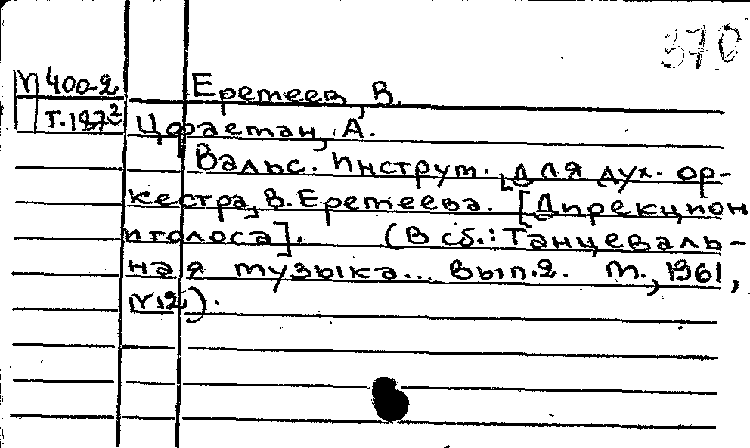 370
М 400-2 Еремеев, В.
Т.187³ Цфаетан, А.
Вальс. Инструм. [для дух. ор-
кестра] В. Еремеева. [Дирекцион
и голоса]. (В сб.: Танцеваль-
ная музыка... вып.2. М., 1961,
№12).